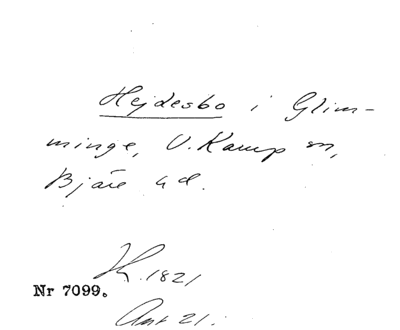 Hejdesbo i Glim-
minge, V. Karup sn,
Bjäre hd.
1821
Nr 7099.
21.